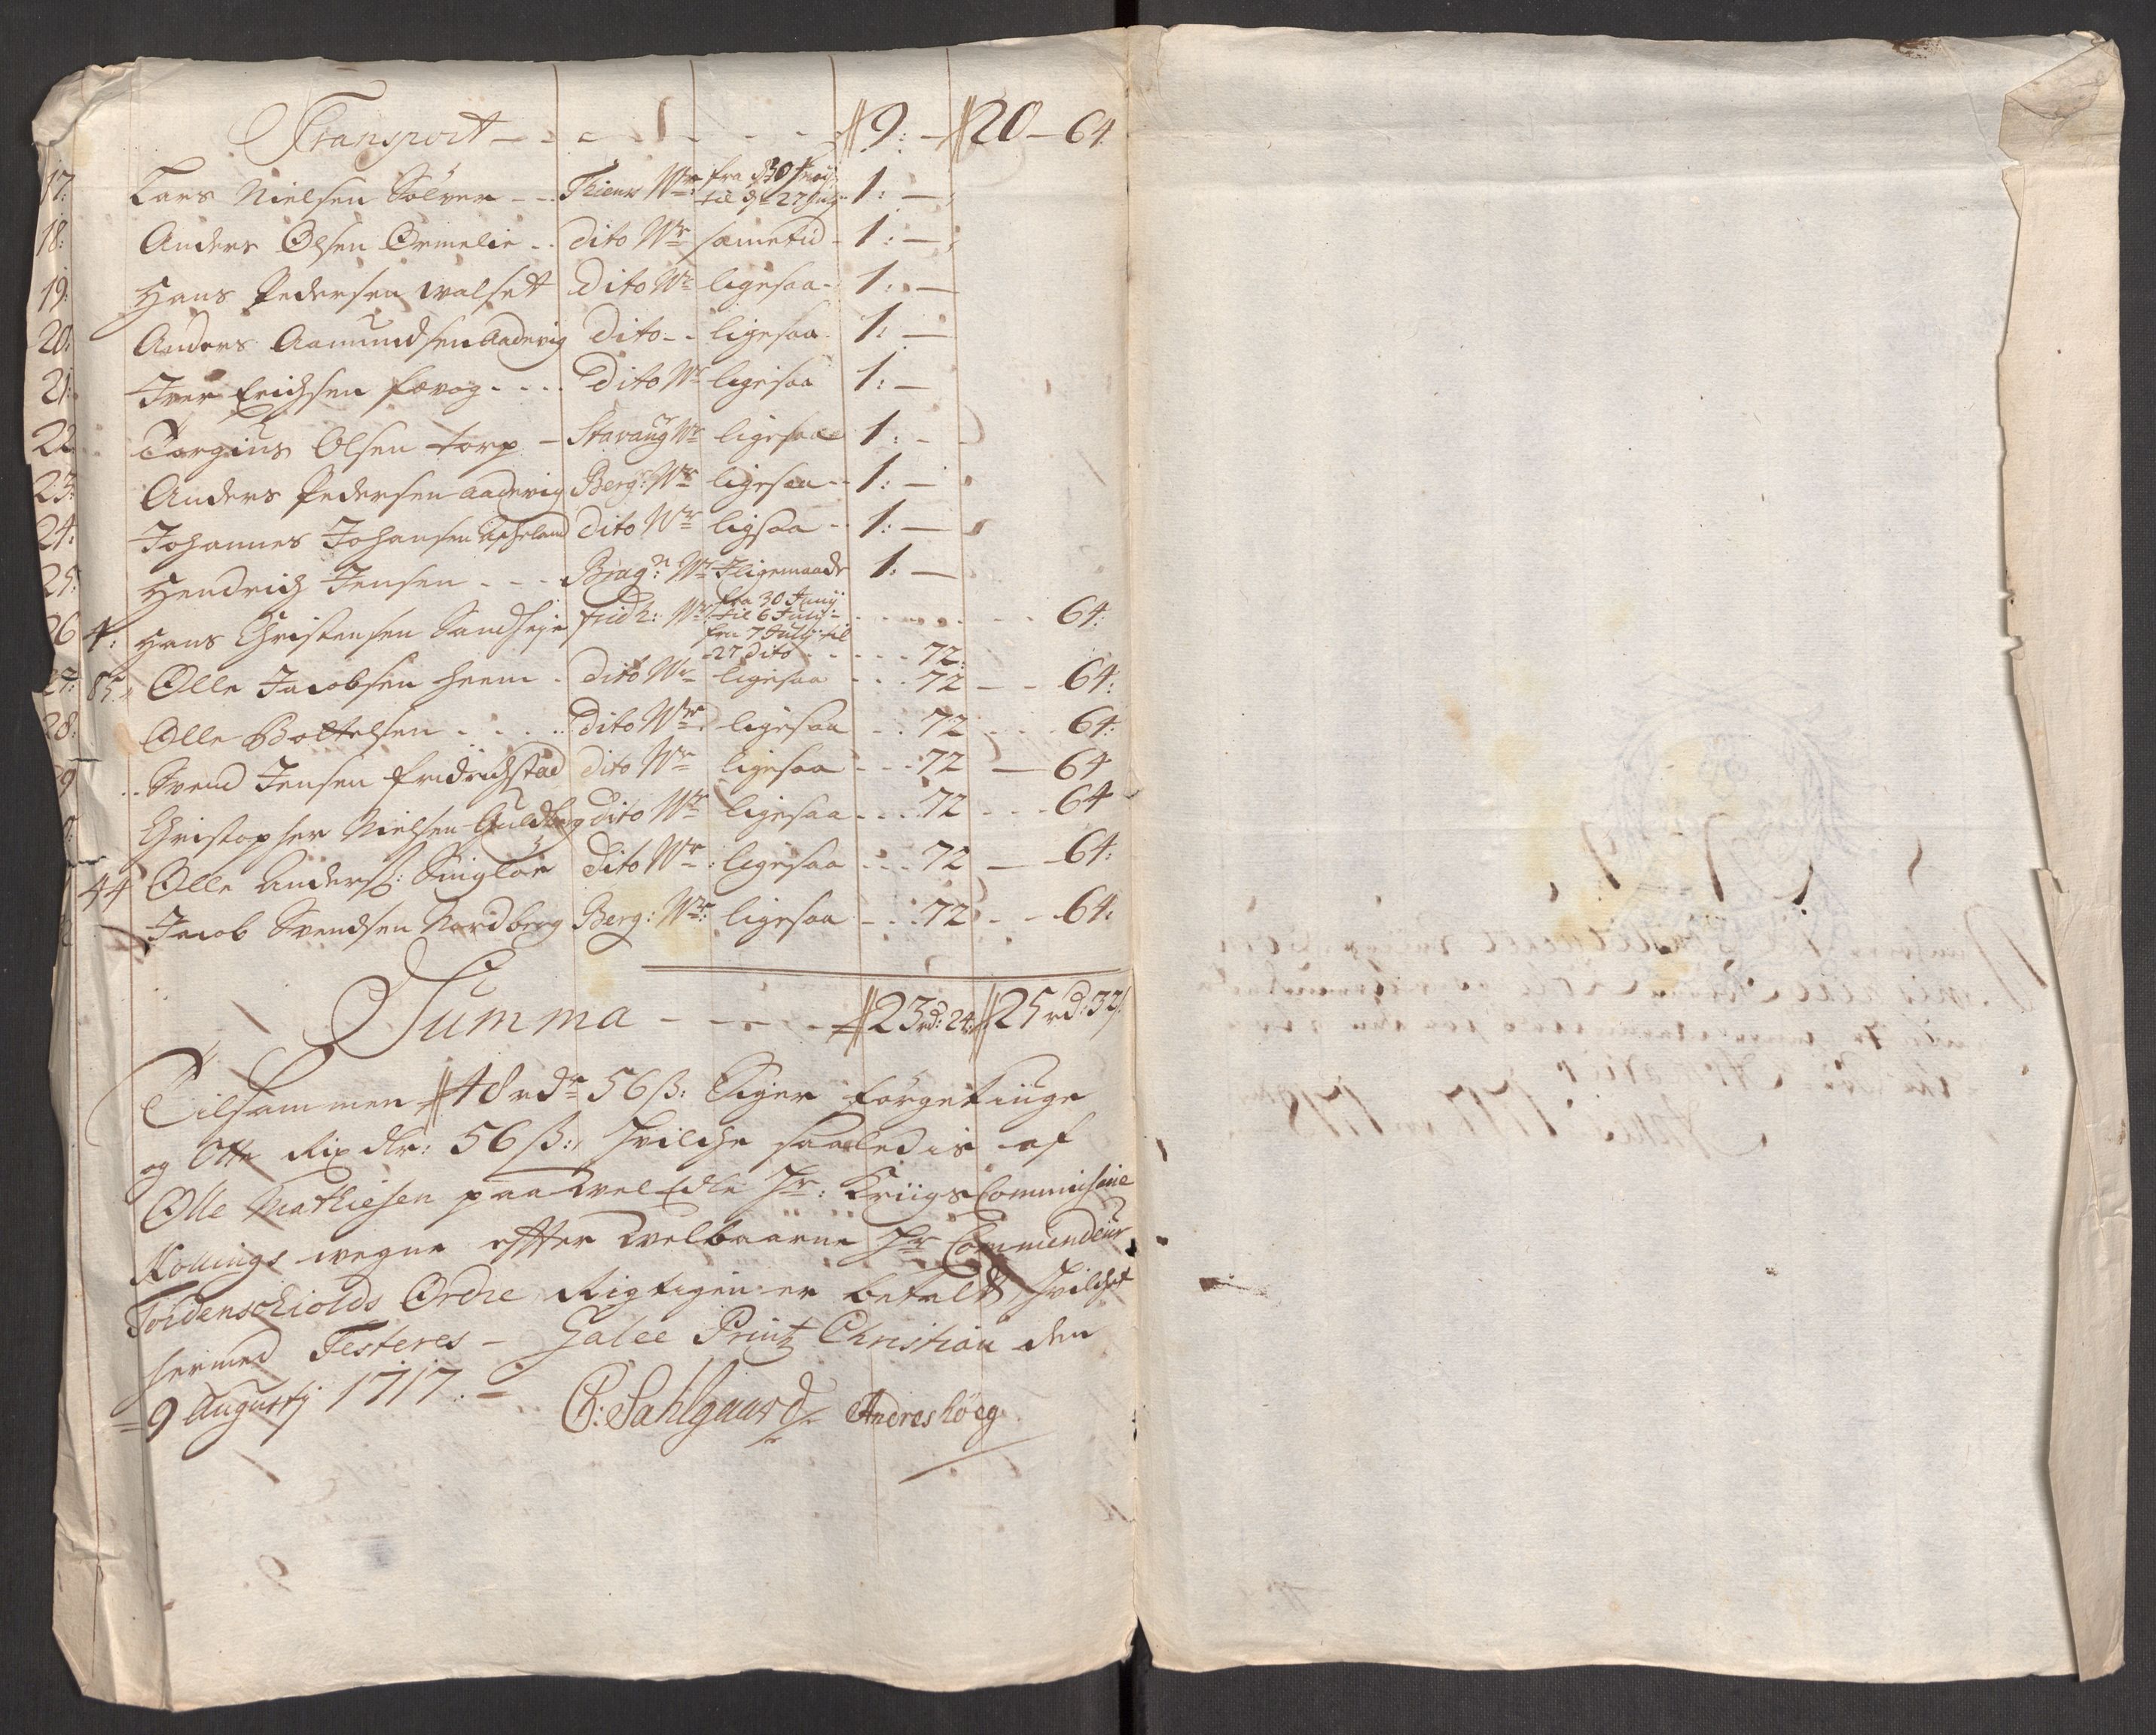 Transport - - - - - - - # 9: - # 20 - 64
17: Lars Nielsen Sölver - - Thiems Wr: fra d: 30 Junij til d: 27 Julij 1: -
18: Anders Olsen Ormelie - . Dito Wr samme tid - 1: -
19: Hans Pedersen Walsett Dito Wr ligesaa - 1: -
20: Anders Aamundsen Aadevig Dito - - ligesaa - 1: -
21: Iver Erichsen Færog - - - - Dito Wr ligesaa 1: -
22 Torgius Olsen torp - Stavang Wr ligesaa 1: - -
23: Anders Pedersen Aadevig Berg: Wr ligesaa - - 1: -
24: Johannes Johansen Dito Wr ligsaa - - 1: -
25: Hendrich Jensen - - - Brag: Wr Jligemaade 1: -
26 4: Hans Christensen Sandheje fridh: Wr fra 30 Junij til 6 Julij - - - - 64:
fra 7 Julij til 27 dito - - - - 72:
27: 85 Olle Jacobsen Heem - Dito Wr ligesaa - - - 72 - - 64:
28: Olle Bottelsen - - - - Dito Wr ligesaa - - 72 - - - 64:
9 Svend Jensen fridrichstad Dito Wr ligesaa - - - 72 - 64
Christopher Nielsen Guldberg dito Wr ligesaa - - - 72 - - - 64
44 Olle Anders: Singlöe Dito Wr: ligesaa - - - 72 - 64:
Jacob Svendsen Nordberg Berg: Wr: ligesaa - - - 72 - - 64:
Summa - - - - - # 23 rd: 24: # 25 rd: 32ß
Tilsammen # 48 rdr 56 ß: Siger förgetiuge
og Otte Rix dlr: 56 ß:, hvilche saaledis af
Olle Mathiesen paa Wel Edle Hr: Kriigs Commissarie
Kollings wegne efter Welbaarne Hr Commendeur
Tordenschiolds Ordre Rigtigen er betalt, hvilchet
hermed Testeres - Galee Printz Christian den
9 Augustij 1717. -
C: Sahlgaard Andres Höeg